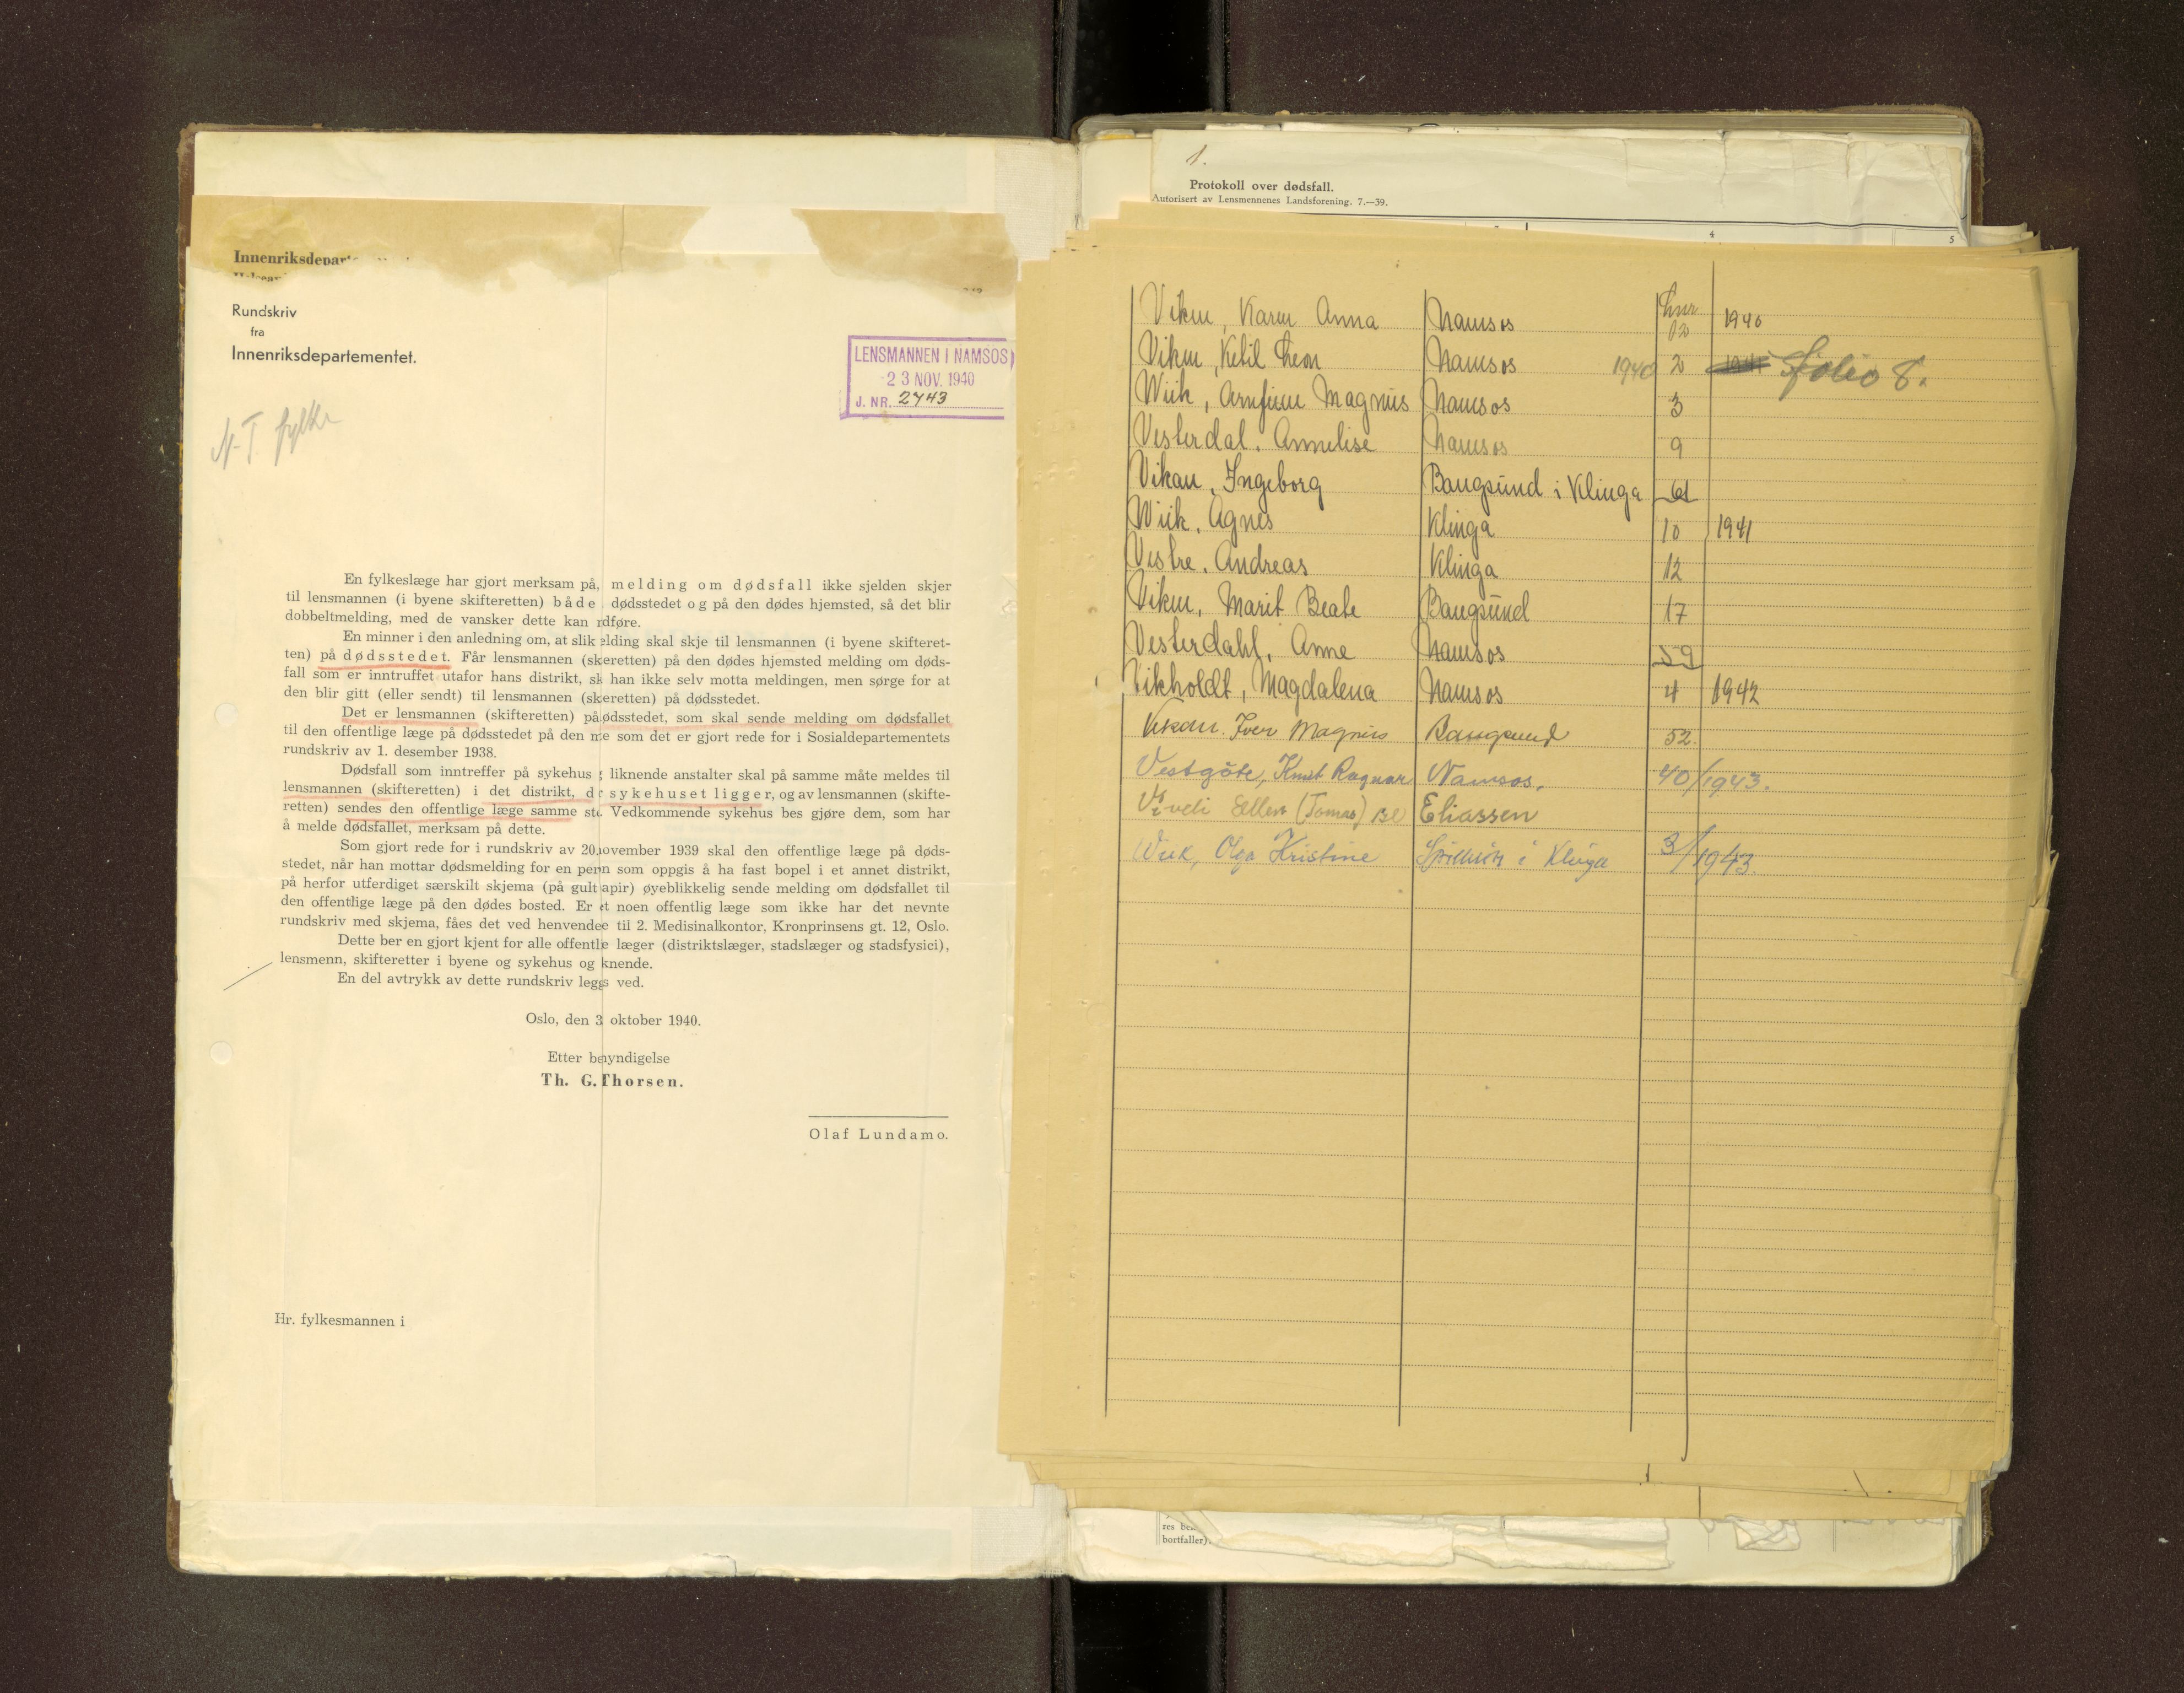 Innenriksdepart
Rundskriv
fra
Innenriksdepartementet.
LENSMANNEN I NAMSOS
23 NOV. 1940
J. NR. 2743
N-T. fylke
En fylkeslæge har gjort merksam på, melding om dødsfall ikke sjelden skjer
til lensmannen (i byene skifteretten) både dødsstedet og på den dødes hjemsted, så det blir
dobbeltmelding, med de vansker dette kan dføre.
En minner i den anledning om, at slik elding skal skje til lensmannen (i byene skifteret-
ten) på dødsstedet. Får lensmannen (skeretten) på den dødes hjemsted melding om døds-
fall som er inntruffet utafor hans distrikt, sk han ikke selv motta meldingen, men sørge for at
den blir gitt (eller sendt) til lensmannen (skeretten) på dødsstedet.
Det er lensmannen (skifteretten) på ødsstedet, som skal sende melding om dødsfallet
til den offentlige læge på dødsstedet på den me som det er gjort rede for i Sosialdepartementets
rundskriv av 1. desember 1938.
Dødsfall som inntreffer på sykehus liknende anstalter skal på samme måte meldes til
lensmannen (skifteretten) i det distrikt, d sykehuset ligger, og av lensmannen (skifte-
retten) sendes den offentlige læge samme ste Vedkommende sykehus bes gjøre dem, som har
å melde dødsfallet, merksam på dette.
Som gjort rede for i rundskriv av 20. november 1939 skal den offentlige læge på døds-
stedet, når han mottar dødsmelding for en pern som oppgis å ha fast bopel i et annet distrikt,
på herfor utferdiget særskilt skjema (på gult apir) øyeblikkelig sende melding om dødsfallet til
den offentlige læge på den dødes bosted. Er et noen offentlig læge som ikke har det nevnte
rundskriv med skjema, fåes det ved henvendee til 2. Medisinalkontor, Kronprinsens gt. 12, Oslo.
Dette ber en gjort kjent for alle offentlie læger (distriktslæger, stadslæger og stadsfysici),
lensmenn, skifteretter i byene og sykehus og knende.
En del avtrykk av dette rundskriv leggs ved.
Oslo, den 3 oktober 1940.
Etter bemyndigelse
Th. G. Thorsen.
Olaf Lundamo.
Hr. fylkesmannen i
1.
Protokoll over dødsfall.
Autorisert av Lensmennenes Landsforening. 7.—39.
4 5
Viken, Karen Anna Namsos 12 1940
Viken, Ketil Leon Namsos 1940 2 folio 8.
Wiik, Arnfinn Magnus Namsos 3
Vesterdal, Annelise Namsos 9
Vikan, Ingeborg Bangsund i Klinga 61
Wiik, Agnes Klinga 10 1941
Vestre, Andreas Klinga 12
Viken, Marit Beate Bangsund 17
Vesterdahl, Anne Namsos 59
Vikholdt, Magdalena Namsos 4 1942
Vikan, Iver Magnus Bangsund 52.
Vestgöte, Knut Ragnar Namsos, 40/1943.
Ellen (Tomas) Eliassen
Wiik, Olga Kristine i Klinga 3/1943.
bortfaller)